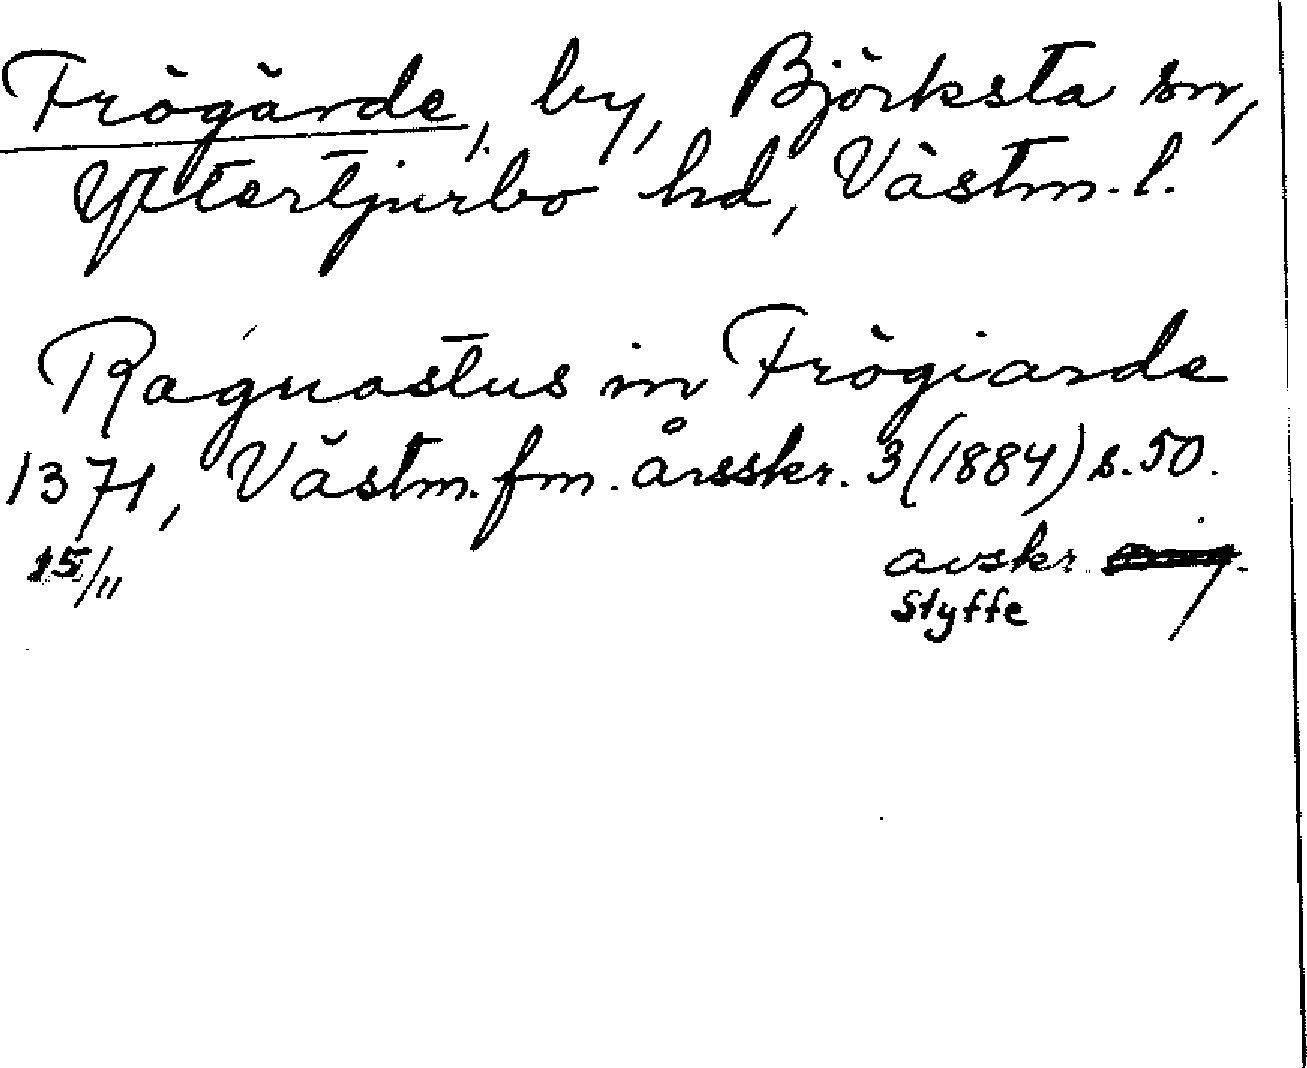 Frögärde, by, Björksta sn,
Yttertjurbo hd, Västm. l.
Raguastus in Frögiarde
1371, Västm. fm. årsskr. 3 (1884) s. 50.
15/11 avskr.
Styffe